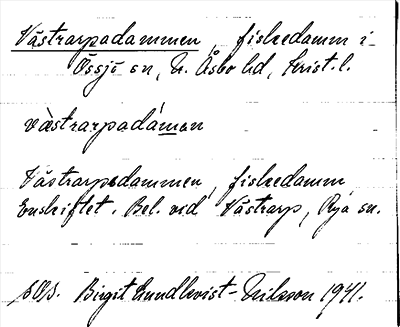 Västrarpadammen, fiskedamm i
Össjö sn, N. Åsbo hd, Krist. l.
västrarpadámen
Västrarpsdammen, fiskedamm,
Enskiftet. Bel. vid Västrarp, Rya sn.
Birgit Lundkvist-Nilsson 1941.